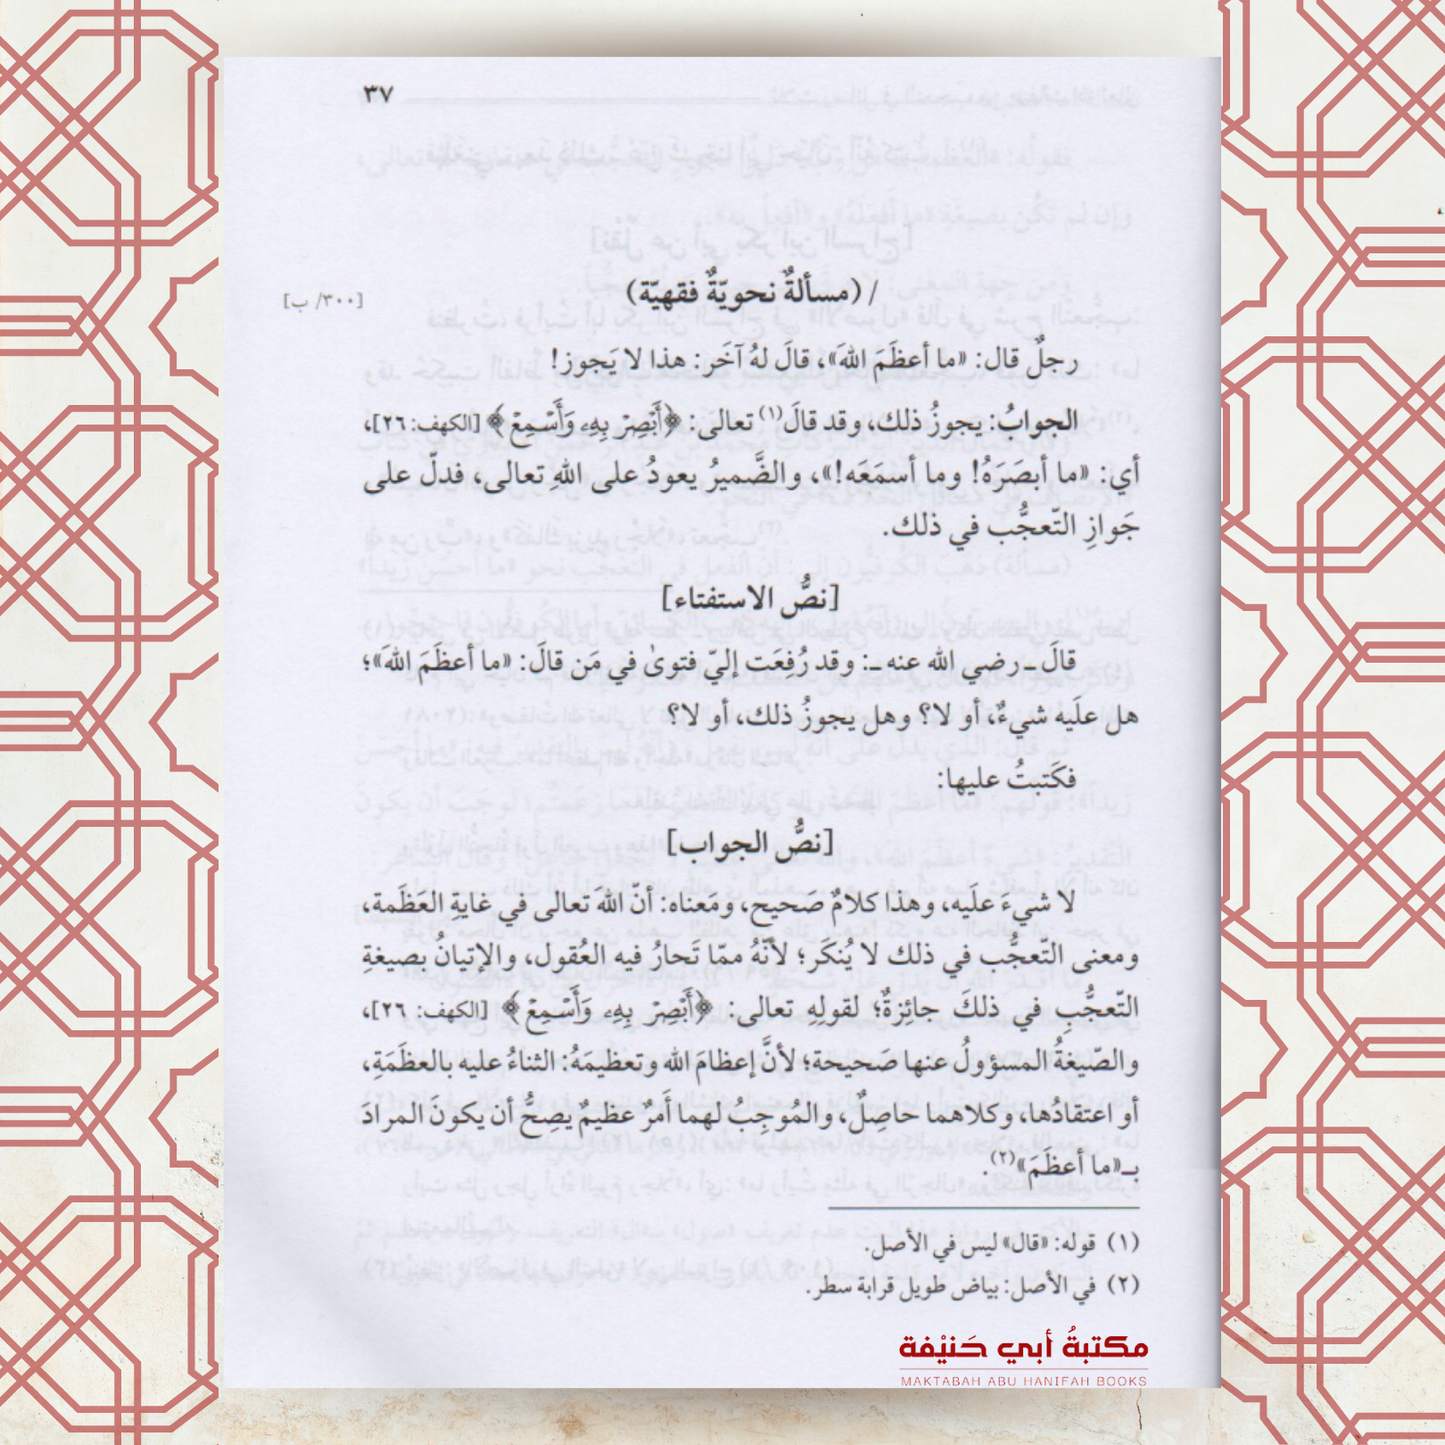 ٣٧
/ (مسألةٌ نحويّةٌ فقهيّة) [٣٠٠/ ب]
رجلٌ قال: «ما أعظَمَ اللهَ»، قالَ لهُ آخَر: هذا لا يَجوز!
الجوابُ: يجوزُ ذلك، وقد قالَ(١) تعالى: ﴿أَبْصِرْ بِهِۦ وَأَسْمِعْ﴾ [الكهف: ٢٦]،
أي: «ما أبصَرَهُ! وما أسمَعَه!»، والضَّميرُ يعودُ على اللهِ تعالى، فدلّ على
جَوازِ التّعجُّب في ذلك.
[نصُّ الاستفتاء]
قالَ ـ رضي الله عنه ـ: وقد رُفِعَت إليّ فتوىٰ في مَن قالَ: «ما أعظَمَ اللهَ»؛
هل علَيه شيءٌ، أو لا؟ وهل يجوزُ ذلك، أو لا؟
فكَتبتُ عليها:
[نصُّ الجواب]
لا شيءَ علَيه، وهذا كلامٌ صَحيح، ومَعناه: أنّ اللهَ تعالى في غايةِ العَظَمة،
ومعنى التّعجُّب في ذلك لا يُنكَر؛ لأنّهُ ممّا تَحارُ فيه العُقول، والإتيانُ بصيغةِ
التّعجُّبِ في ذلكَ جائِزةٌ؛ لقولِهِ تعالى: ﴿أَبْصِرْ بِهِۦ وَأَسْمِعْ﴾ [الكهف: ٢٦]،
والصّيغةُ المسؤولُ عنها صَحيحة؛ لأنَّ إعظامَ الله وتعظيمَهُ: الثناءُ عليه بالعظَمَةِ،
أو اعتقادُها، وكلاهما حاصِلٌ، والمُوجِبُ لهما أَمرٌ عظيمٌ يصِحُّ أن يكونَ المرادَ
بـ«ما أعظَمَ»(٢).
(١) قوله: «قال» ليس في الأصل.
(٢) في الأصل: بياض طويل قرابة سطر.
مكتبةُ أبي حَنيْفة
MAKTABAH ABU HANIFAH BOOKS